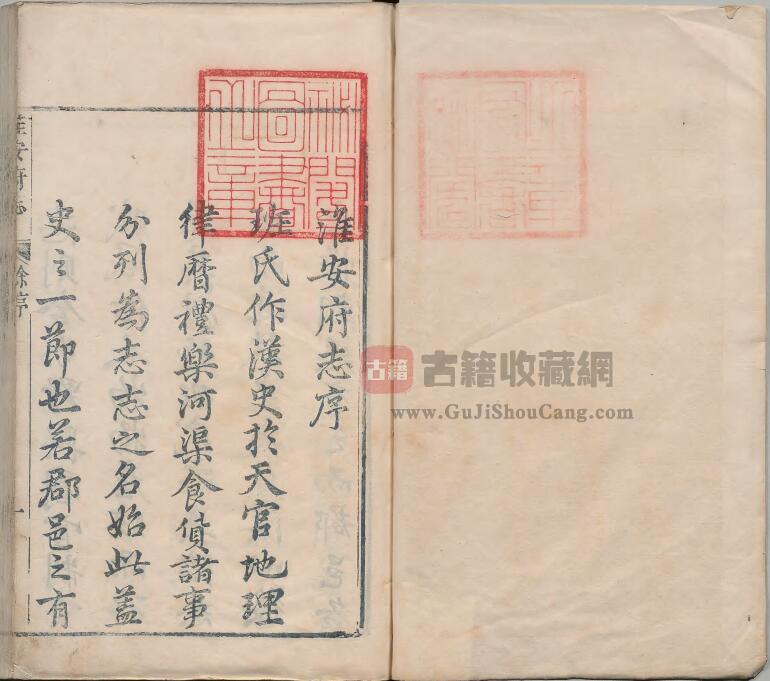 淮安府志序
班氏作漢史於天官地理
律曆禮樂河渠食貨諸事
分列為志志之名始此蓋
史之一節也若郡邑之有
淮安府志
徐序
一
秘閣圖書之章
古籍
古籍收藏網
www.GuJiShouCang.com